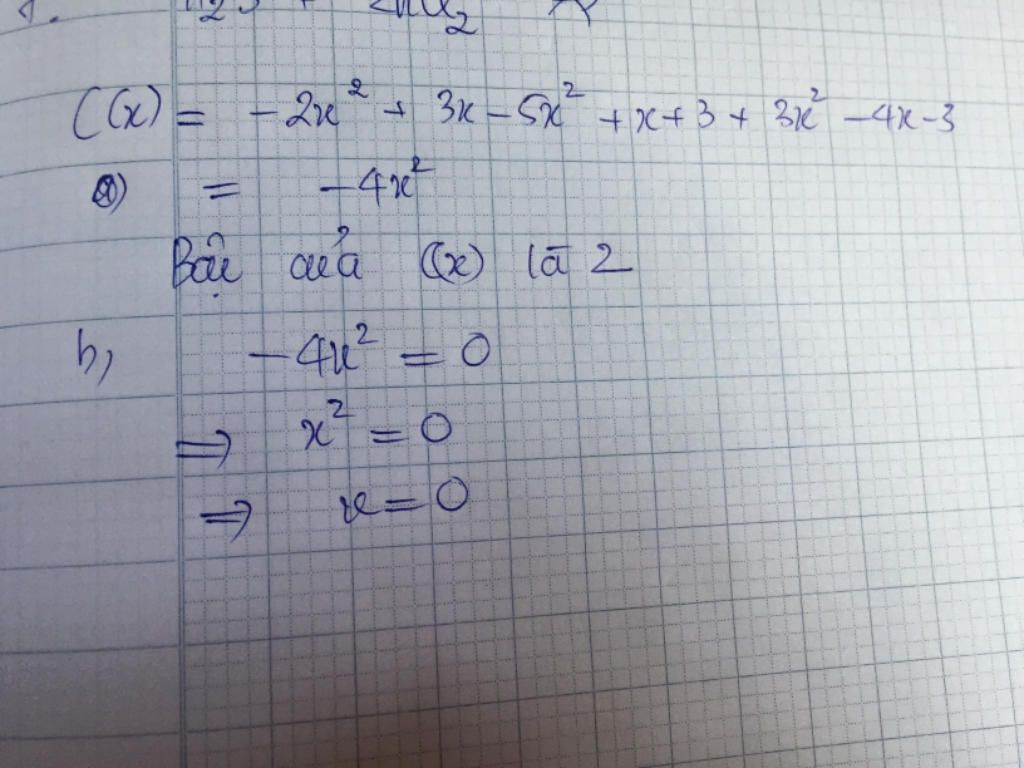 C(x) = -2x² + 3x - 5x² + x + 3 + 3x² - 4x - 3
a) = -4x²
Bậc của C(x) là 2
b, -4x² = 0
⇒ x² = 0
⇒ x = 0